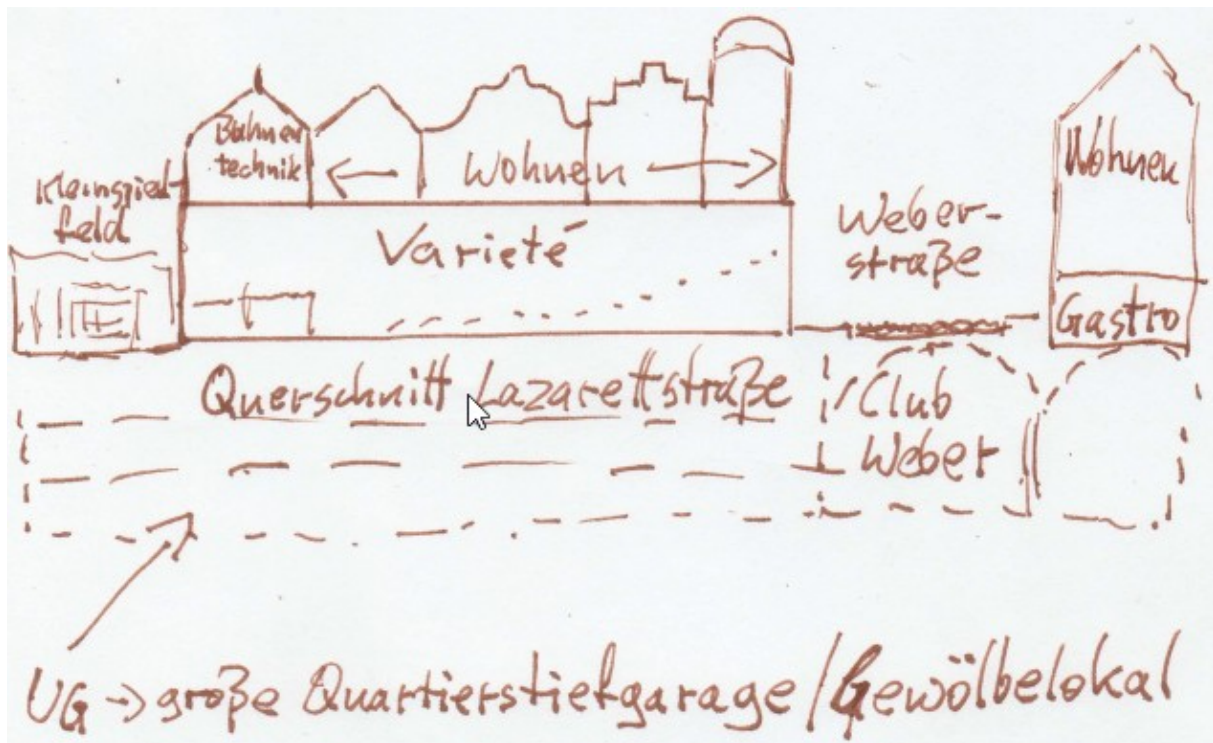 Bühnen
technik
Kleinspiel-
feld
Wohnen
Varieté
Weber-
straße
Wohnen
Gastro
Querschnitt Lazarettstraße
Club
Weber
UG → große Quartierstiefgarage / Gewölbelokal